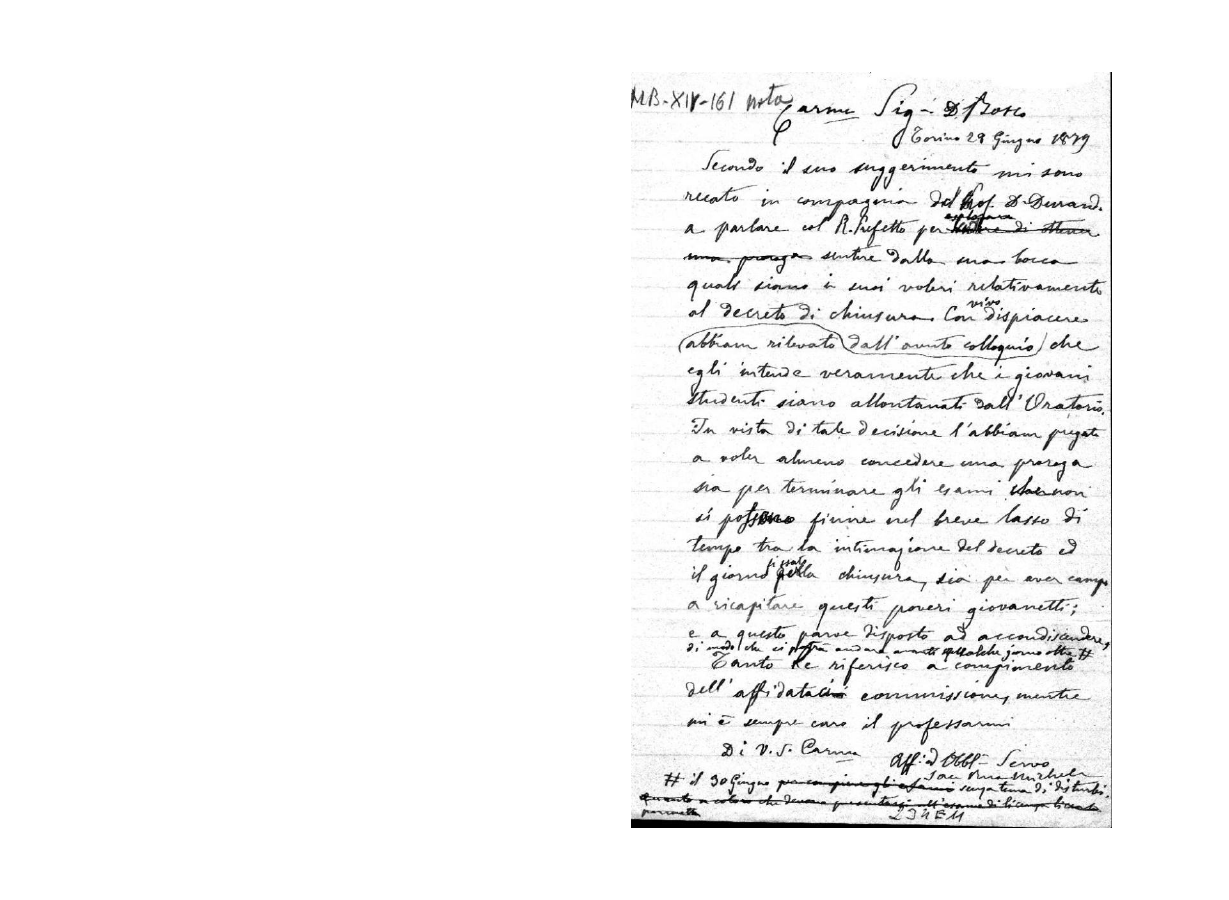 MB-XIV-161 nota
Carme Sig- D. Bosco
Torino 29 Giugno 1879
Secondo il suo suggerimento mi sono
recato in compagnia del Prof. D. Durand.
a parlare col R. Prefetto per esplorare di ottener
una proroga sentire dalla sua bocca
quali siano i suoi voleri relativamente
al decreto di chiusura. Con vivo dispiacere
abbiam rilevato dall'avuto colloquio che
egli intende veramente che i giovani
studenti siano allontanati dall'Oratorio.
In vista di tale decisione l'abbiam pregato
a voler almeno concedere una proroga
sia per terminare gli esami che non
si possono finire nel breve lasso di
tempo tra la intimazione del decreto ed
il giorno fissato per la chiusura, sia per aver campo
a ricapitare questi poveri giovanetti;
e a questo parve disposto ad accondiscendere,
di modo che si potrà andare avanti qualche giorno oltre #
Tanto Le riferisco a compimento
dell'affidata commissione, mentre
mi è sempre caro il professarmi
Di V. S. Carma
Aff. ed Obbl- Servo
Sac. Rua Michele
# il 30 Giugno per compiere gli esami senza tema di disturbi.
Quanto a coloro che devono presentarsi all'esame di licenza
234E11